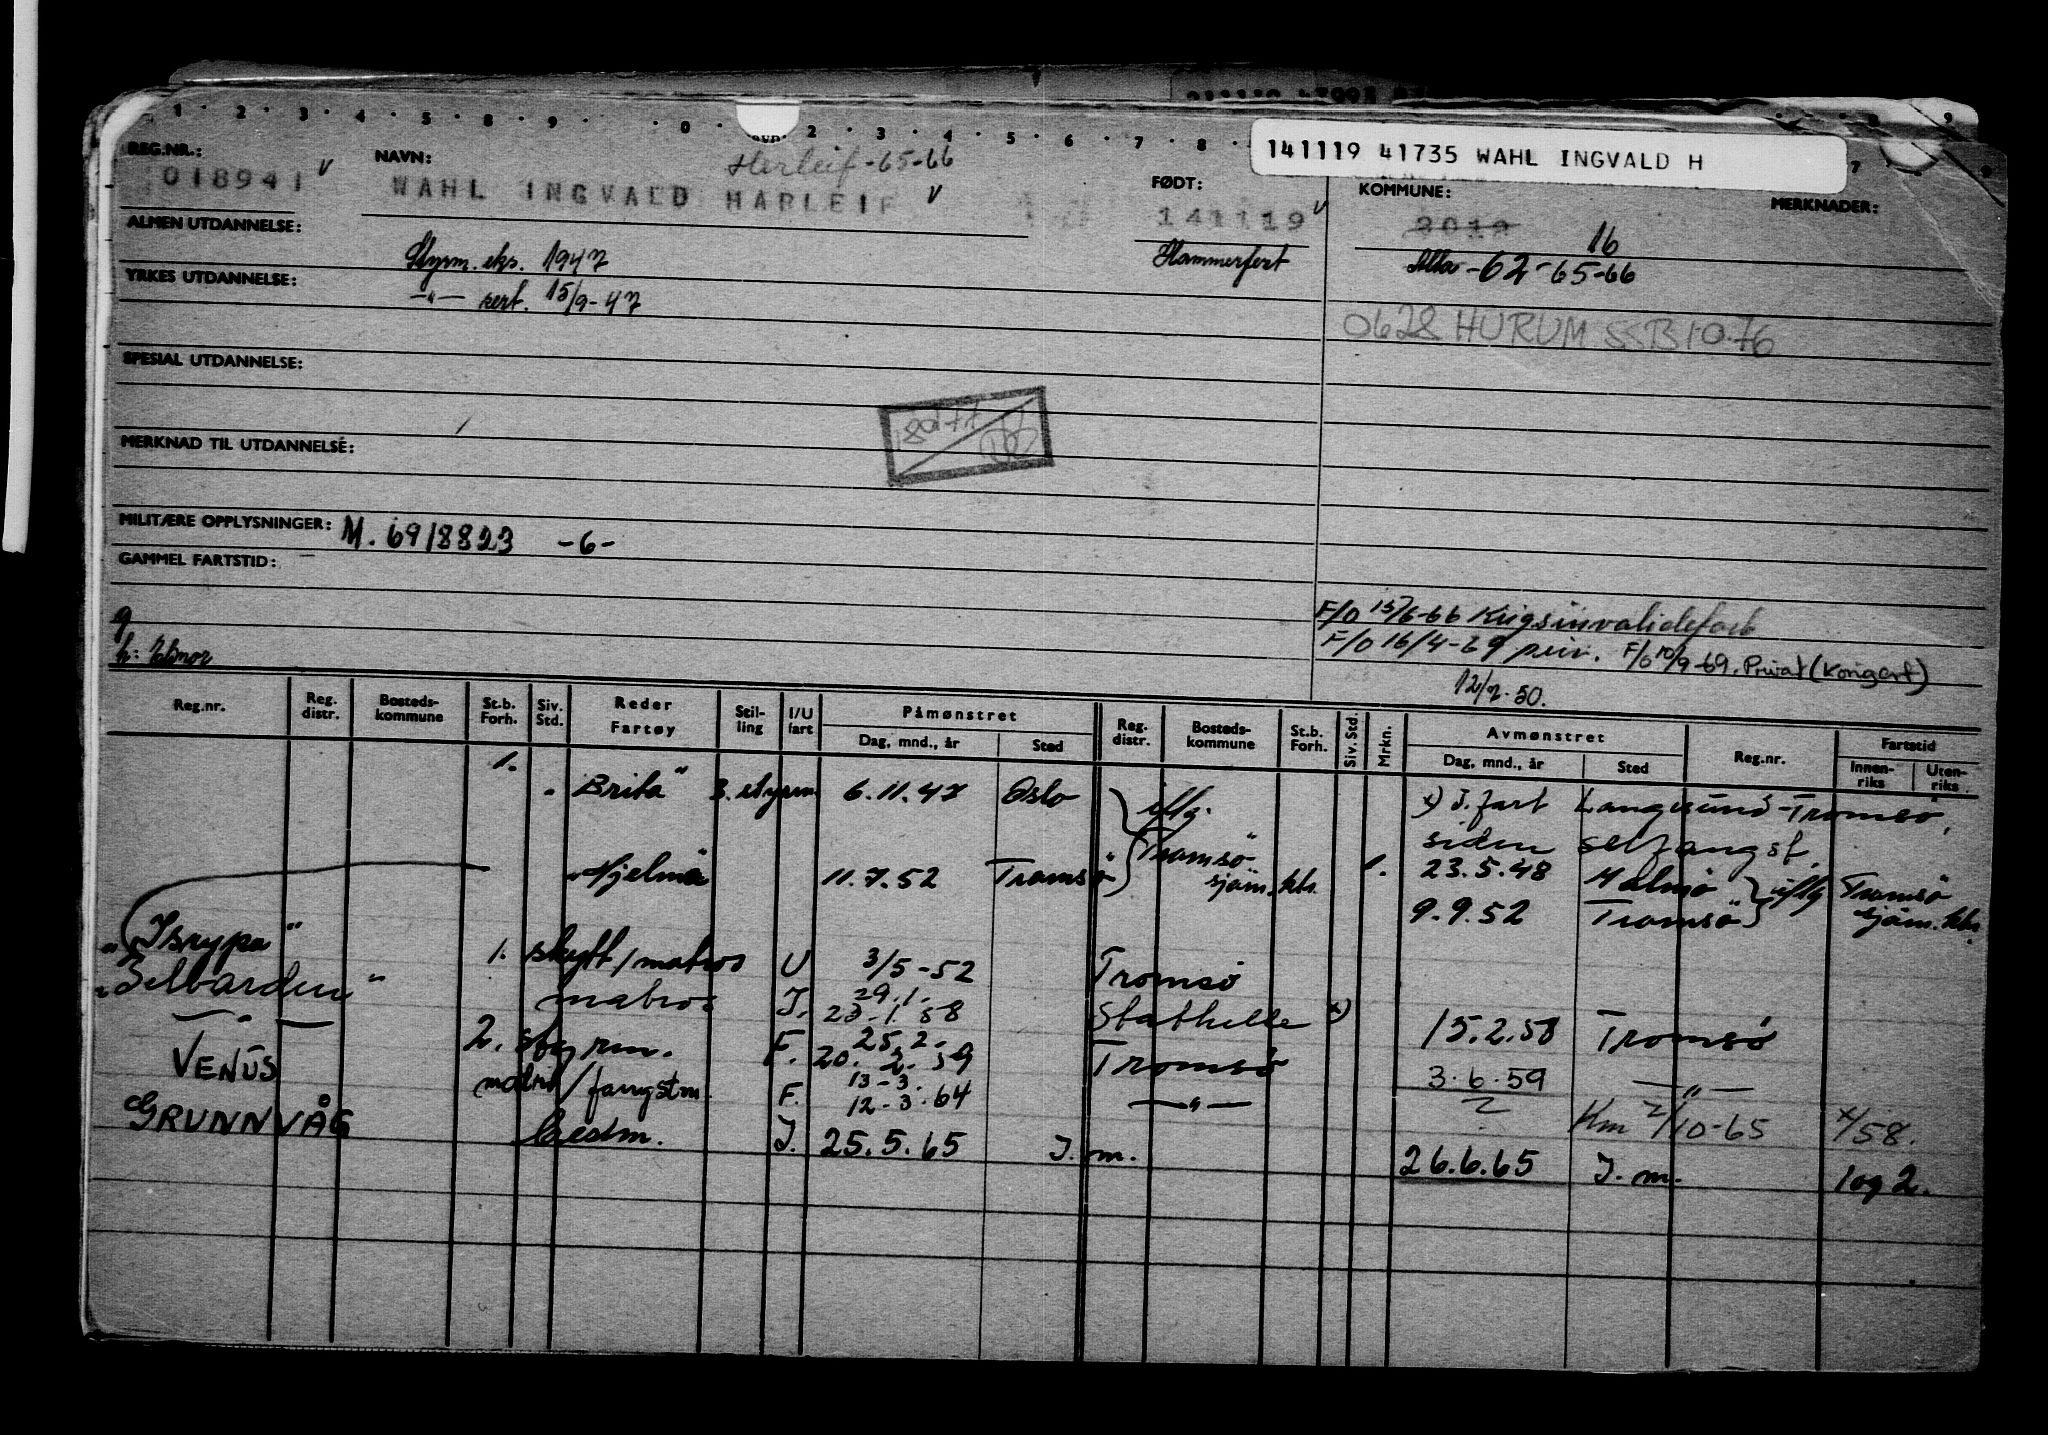 141119 41735 WAHL INGVALD H
REG.NR.: 018941 v
NAVN: Harleif -65-66
WAHL INGVALD HARLEIF v
FØDT: 141119 v
Hammerfest
KOMMUNE: 2012 16
Alta -62-65-66
MERKNADER:
0628 HURUM SSB 10.76
ALMEN UTDANNELSE:
Styrm. eks. 1947
YRKES UTDANNELSE:
—"— sert. 15/9-47
SPESIAL UTDANNELSE:
MERKNAD TIL UTDANNELSE:
MILITÆRE OPPLYSNINGER: M. 6918823 -6-
GAMMEL FARTSTID:
F/O 15/6-66 Krigsinvalideforb
F/O 16/4-69 priv. F/o 10/9-69. Privat (Kongert)
12/2-50.
Reg.nr. Reg. distr. Bosteds-kommune St.b. Forh. Siv. Std. Reder Fartøy Stil-ling I/U fart Påmønstret Dag, mnd., år Sted Reg. distr. Bosteds-kommune St.b. Forh. Siv. Std. Mrkn. Avmønstret Dag, mnd., år Sted Reg.nr. Fartstid Innen-riks Uten-riks
1. "Brita" 3. styrm. 6.11.47 Oslo iflg. Tromsø sjøm.ktr. x) I. fart Langesund-Tromsø,
siden selfangst.
1. 23.5.48 Malmø iflg Tromsø sjøm.ktr.
"Hjelmø" 11.7.52 Tromsø 9.9.52 Tromsø
"Isrypa" 1. skytt/matros U 3/5-52 Tromsø
"Selbarden" matros I. 29.1.- 23.1.58 Stathelle x) 15.2.58 Tromsø
—"— 2. styrm. F. 25.2.- 20.2.59 Tromsø 3.6.59 —"—
VENUS matros/fangstm. F. 13-3.- 12-3.64 —"— ? Hm 2/10-65 x/58.
GRUNNVÅG bestm. I. 25.5.65 I.m. 26.6.65 I.m. 1og2.